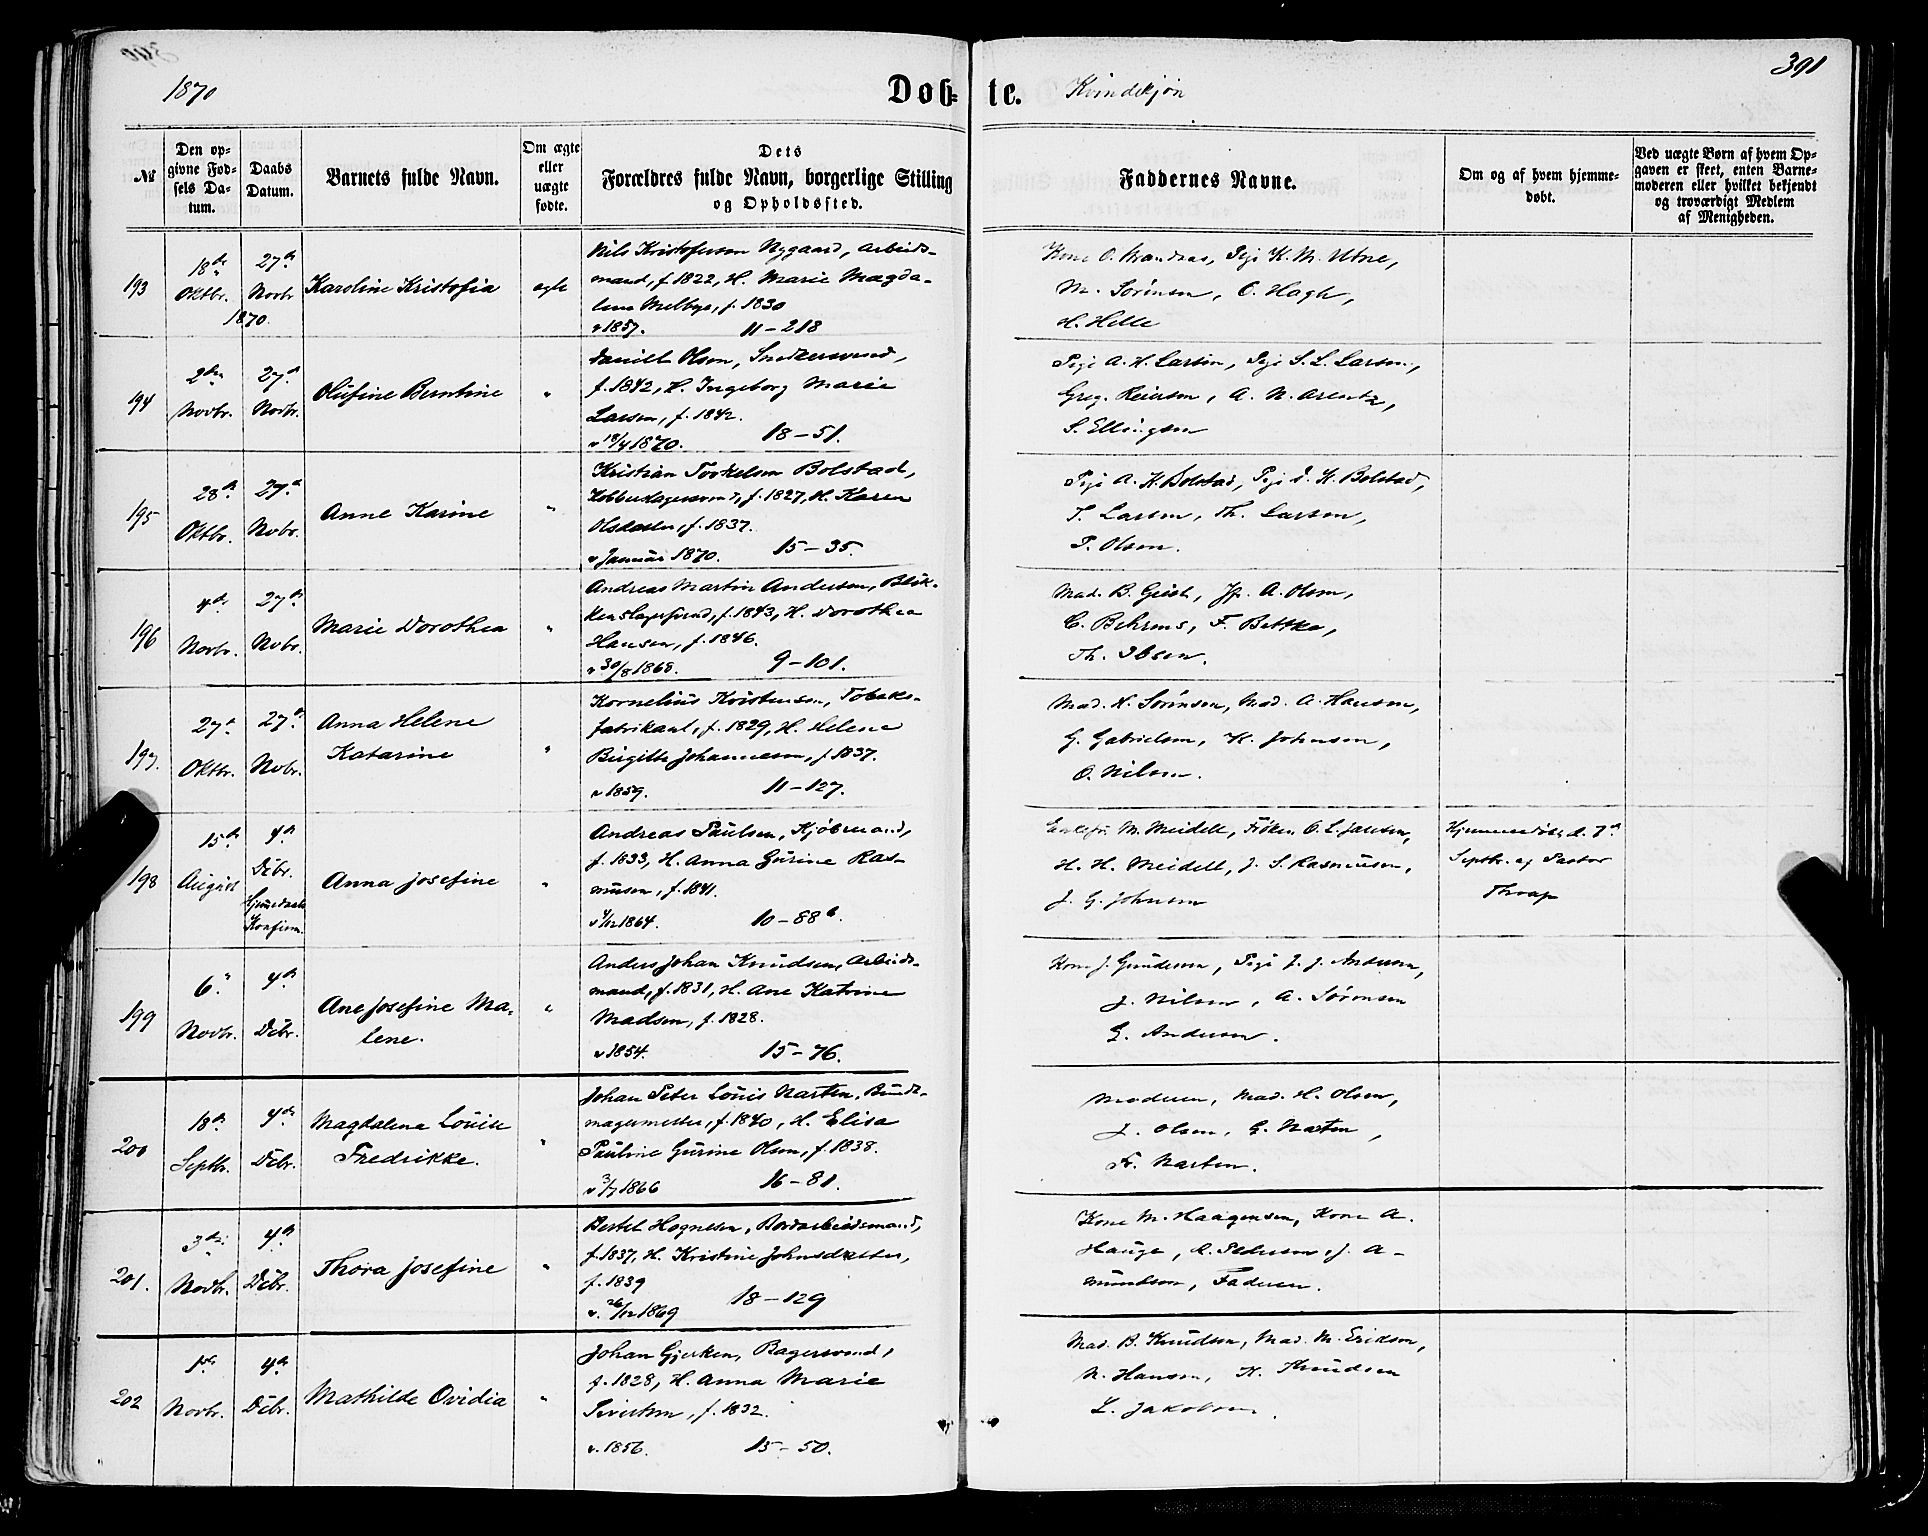 390
391
1870
Döb- te. Kvindekjøn
№
Den op-
givne Föd-
sels Da-
tum.
Daabs
Datum.
Barnets fulde Navn.
Om ægte
eller
uægte
födte.
Dets
Forældres fulde Navn, borgerlige Stilling
og Opholdssted.
Faddernes Navne.
Om og af hvem hjemme-
döbt.
Ved uægte Börn af hvem Op-
gaven er skeet, enten Barne-
moderen eller hvilket bekjendt
og troværdigt Medlem
af Menigheden.
193
18de
Oktbr.
27de
Novbr
1870.
Karoline Kristofia
ægte
Nils Kristofersen Nygaard, Arbeids-
mand, f. 1822, H. Marie Magda-
lena Melbye, f. 1830
v 1857. 11-218
Kone O. Brandeas, Pige K. M. Utne,
M. Sørensen, O. Hagh,
H. Helle
194
2den
Novbr.
27de
Novbr.
Olufine Berntine
"
Daniel Olsen, Snedkersvend,
f. 1842, H. Ingeborg Marie
Larsen, f. 1842.
v 18/4 1870. 18-51.
Pige A. H. Larsen, Pige S. L. Larsen,
Greg. Reiersen, A. N. Arentz,
S. Ellingsen
195
28de
Oktbr.
27de
Nobr.
Anne Karine
"
Kristian Torkelsen Bolstad,
Kobberslagersvend, f. 1827, H. Karen
Olsdatter, f. 1837.
v Januar 1870. 15-35.
Pige A. K. Bolstad, Pige I. K. Bolstad,
T. Larsen, Th. Larsen,
P. Olsen.
196
4de
Novbr.
27de
Nobr.
Marie Dorothea
"
Andreas Martin Andersen, Blik-
kenslagersvend, f. 1843, H. Dorothea
Hansen, f. 1846.
v 30/8 1868. 9-101.
Mad. B. Geish, Jfr. A. Olsen,
C. Behrens, F. Bettke,
Th. Ibsen.
197.
27de
Oktbr.
27de
Nobr.
Anna Helene
Katarine
"
Kornelius Kristensen, Tobaks-
fabrikant, f. 1829, H. Helene
Birgitte Johannesen, f 1837.
v 1859. 11-127.
Mad. K. Sørensen, Mad. A. Hansen,
G. Gabrielsen, K. Johnsen,
O. Nilsen.
198
15de
August
4de
Dcbr.
Hjemmedaab
Konfirm.
Anna Josefine
"
Andreas Paulsen, Kjøbmand,
f. 1833, H. Anna Gurine Ras-
mussen, f. 1841.
v 4/12 1864. 10-88b.
Enkefru M. Meidell, Frøken O. L. Jansen,
H. H. Meidell, J. S. Rasmussen,
J. G. Johnsen
Hjemmedøbt d. 7de
Septbr. af Pastor
Thrap
199
6te
Novbr.
4de
Dcbr.
Ane Josefine Ma-
lene.
"
Anders Johan Knudsen, Arbeids-
mand, f. 1831, H. Ane Katrine
Madsen, f. 1828.
v 1854. 15-76.
Kone J. Gundersen, Pige J. J. Andersen,
J. Nilsen, A. Sørensen
G. Andersen.
200
18de
Septbr.
4de
Dcbr.
Magdalena Louise
Fredrikke.
"
Johan Peter Louis Narten, Bundt-
magermester, f. 1840, H. Elisa
Pauline Gurine Olsen, f. 1838.
v 3/7 1866 16-81.
Moderen, Mad. H. Olsen,
J. Olsen, G. Narten,
Fr. Narten.
201.
3die
Novbr.
4de
Dcbr.
Thora Josefine
"
Bertel Hognesen, Bordarbeidsmand,
f. 1837, H. Kristine Johnsdatter,
f. 1839
v. 26/12 1869 18-129
Kone M. Haagensen, Kone A.
Hauge, R. Pedersen, J. A-
mundsen, Faderen.
202
1ste
Novbr.
4de
Dcbr.
Mathilde Ovidia
"
Johan Gjerken, Bagersvend,
f. 1828, H. Anna Marie
Sivertsen, f. 1832.
v. 1856. 15-50.
Mad. B. Knudsen, Mad. M. Eriksen,
N. Hansen, K. Knudsen
L. Jakobsen.